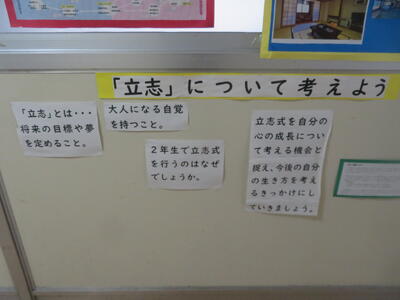 「立志」について考えよう
「立志」とは・・・
将来の目標や夢
を定めること。
大人になる自覚
を持つこと。
２年生で立志式
を行うのはなぜ
でしょうか。
立志式を自分の
心の成長につい
て考える機会と
捉え、今後の自分
の生き方を考え
るきっかけにし
ていきましょう。